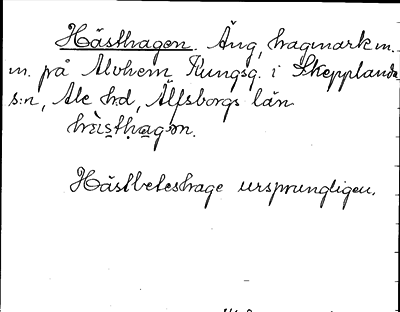 Hästhagen. Äng, hagmark m.
m. på Alvhem Kungsg. i Skepplanda
s:n, Ale hd, Älfsborgs län
Hästbeteshage ursprungligen.